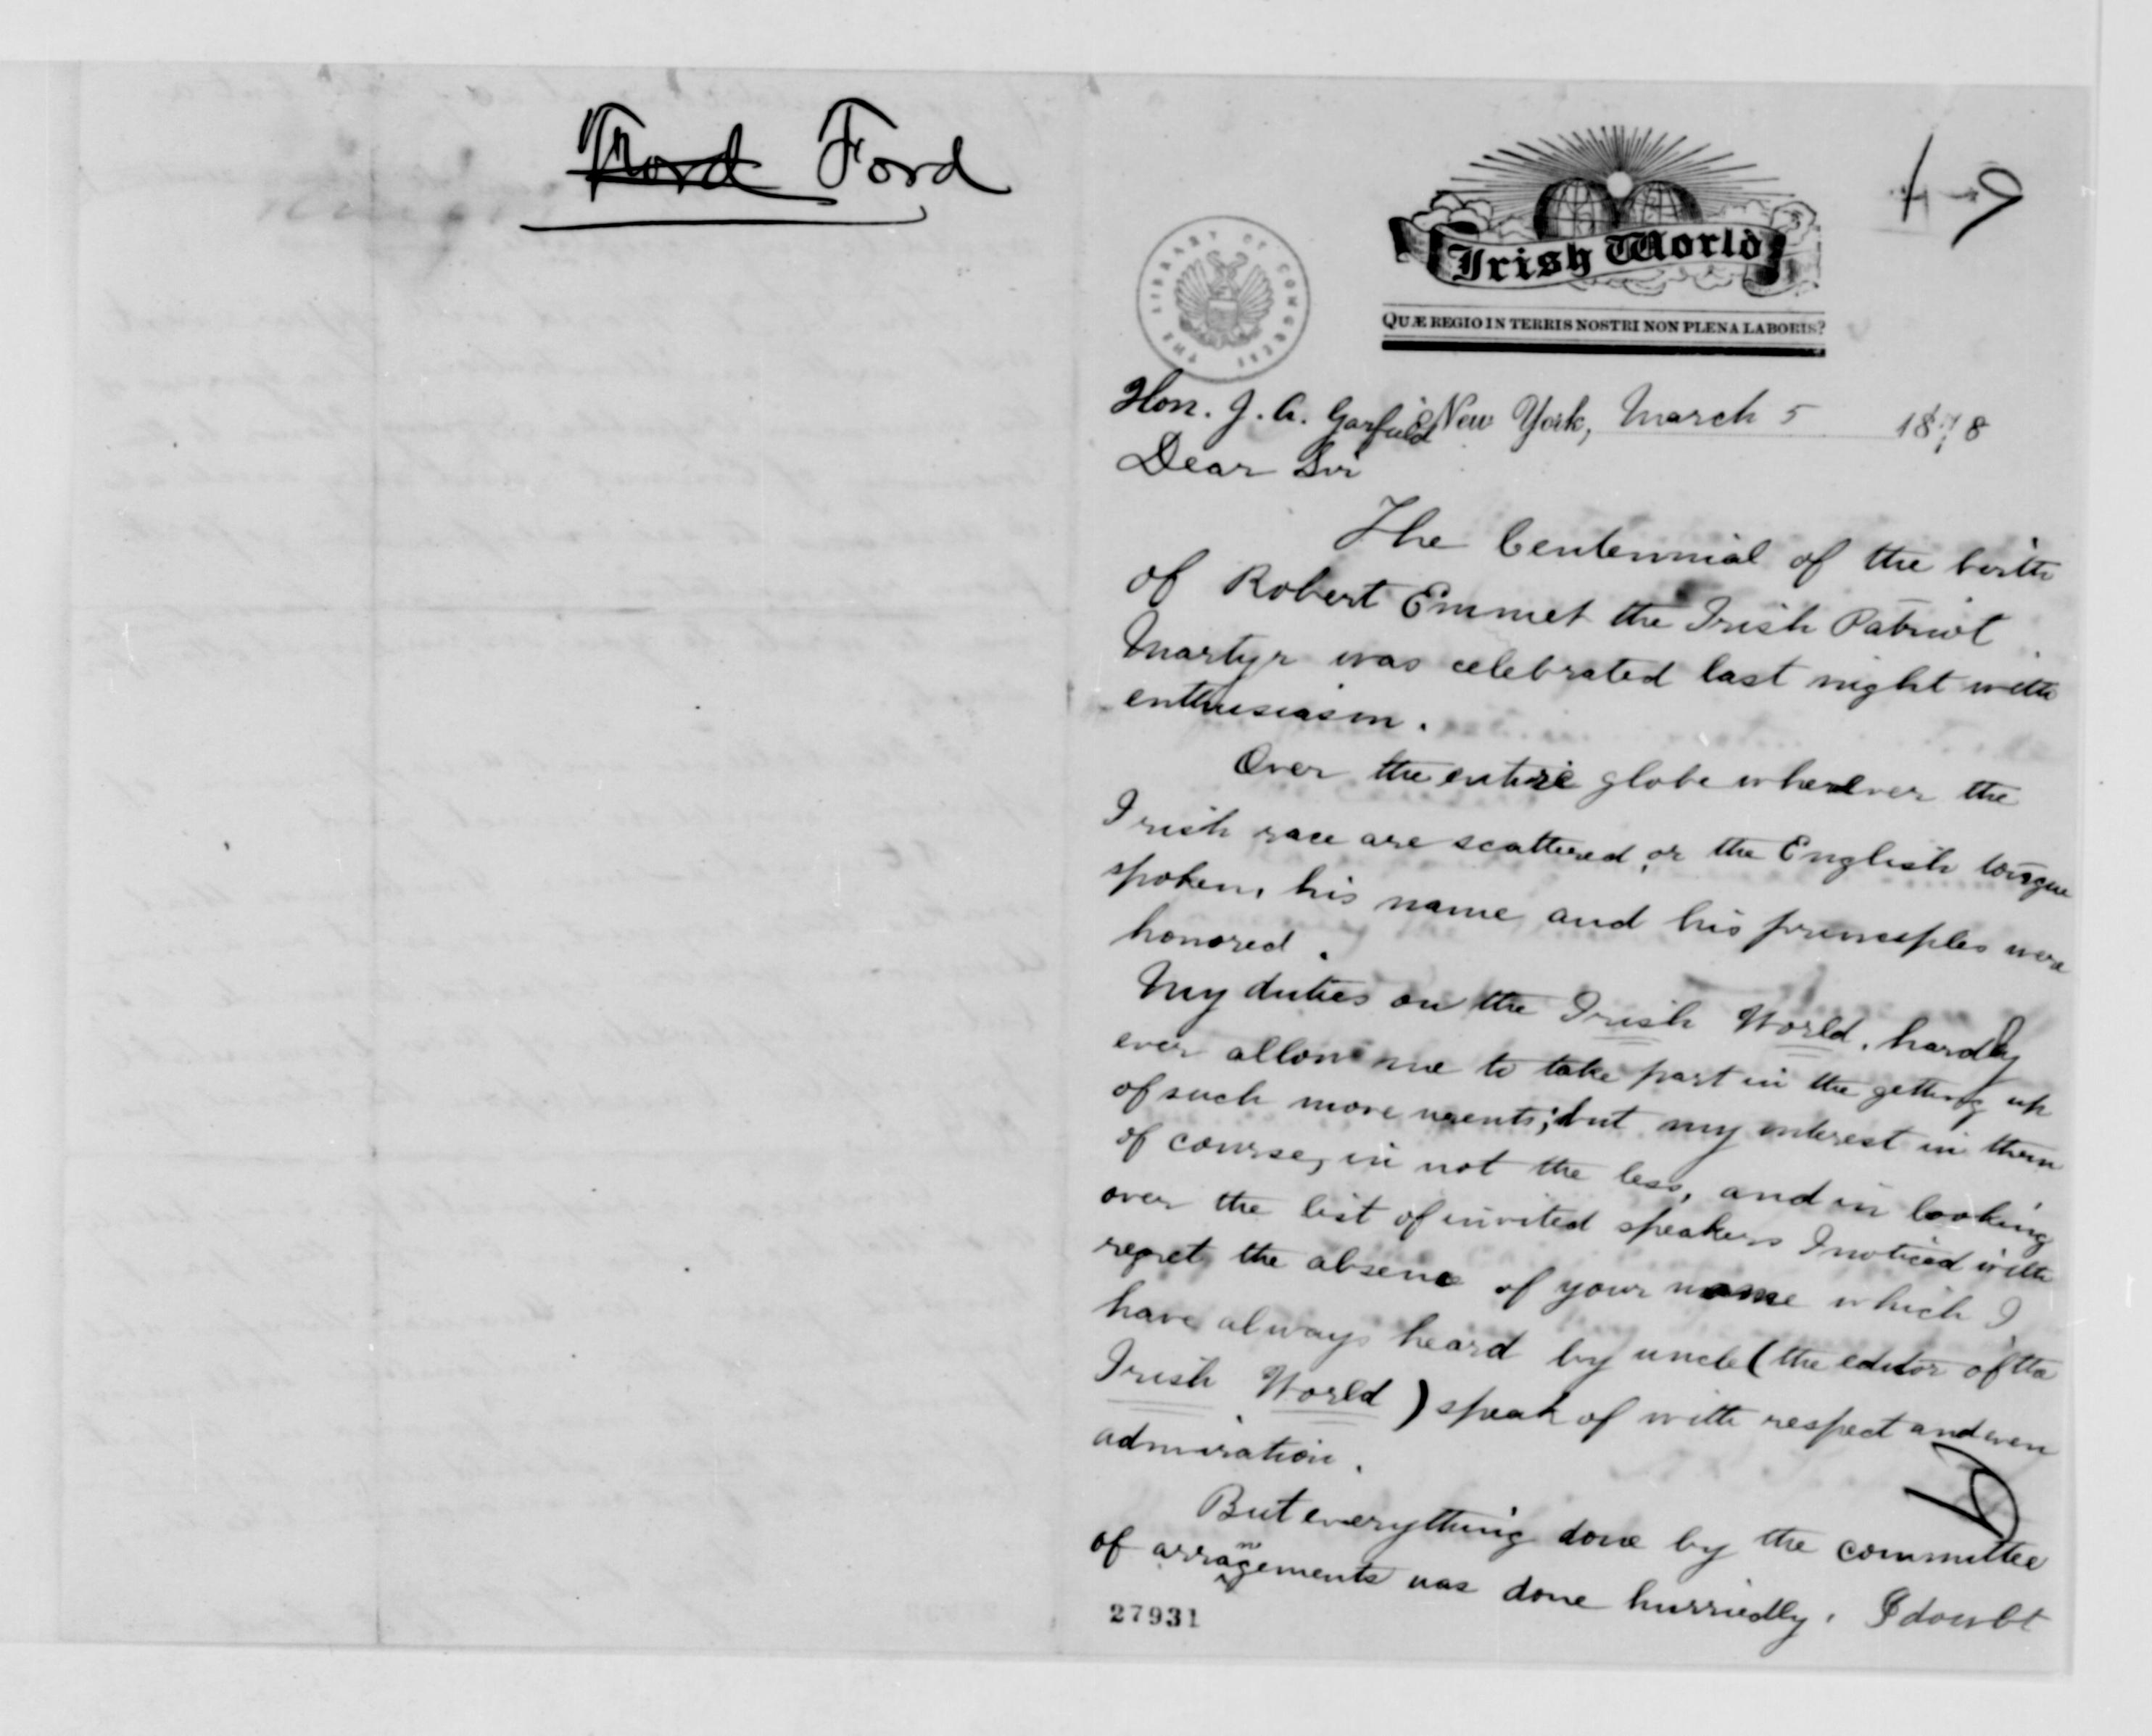 Ford Ford
THE LIBRARY OF CONGRESS
Irish World
QUÆ REGIO IN TERRIS NOSTRI NON PLENA LABORIS?
Hon. J. A. Garfield New York, March 5 1878
Dear Sir
The Centennial of the birth
of Robert Emmet the Irish Patriot
Martyr was celebrated last night with
enthusiasm.
Over the entire globe wherever the
Irish race are scattered, or the English tongue
spoken, his name and his principles were
honored.
My duties on the Irish World, hardly
ever allow me to take part in the getting up
of such movements; but my interest in them
of course, in not the less, and in looking
over the list of invited speakers I noticed with
regret the absence of your name which I
have always heard by uncle (the editor of the
Irish World) speak of with respect and even
admiration.
But everything done by the committee
of arrangements was done hurriedly. I doubt
27931